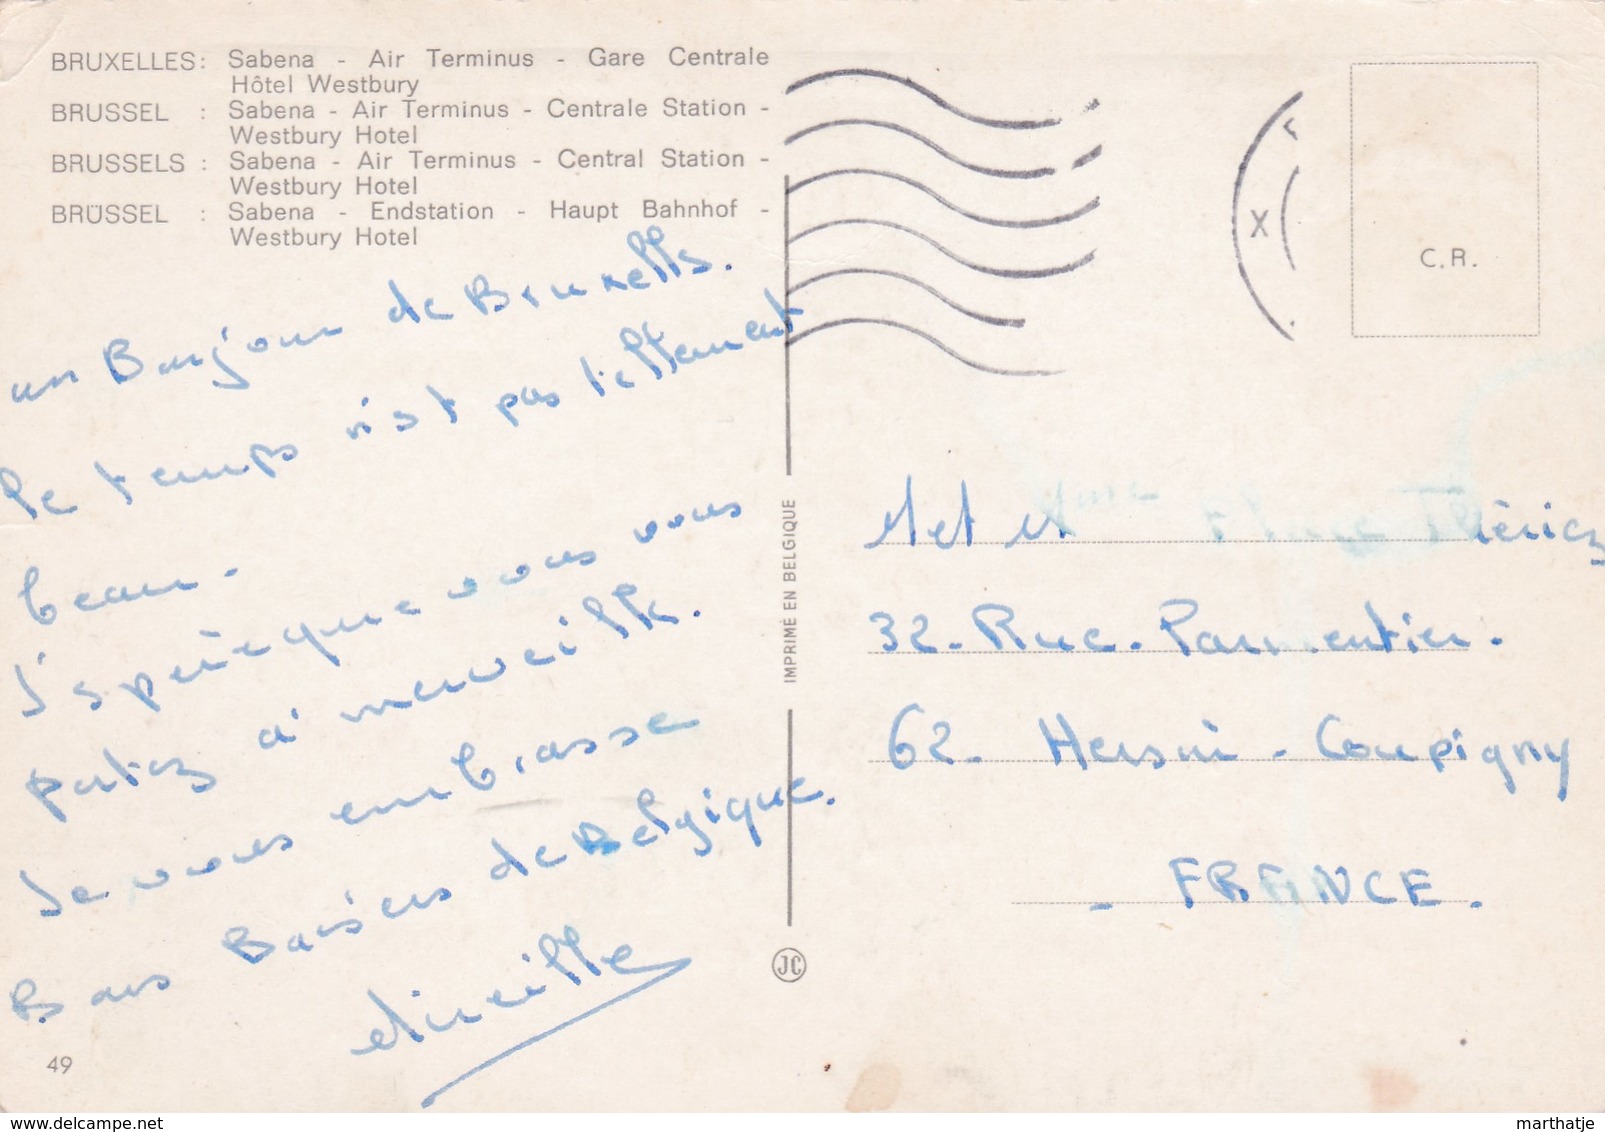 BRUXELLES: Sabena - Air Terminus - Gare Centrale
Hôtel Westbury
BRUSSEL : Sabena - Air Terminus - Centrale Station -
Westbury Hotel
BRUSSELS : Sabena - Air Terminus - Central Station -
Westbury Hotel
BRÜSSEL : Sabena - Endstation - Haupt Bahnhof -
Westbury Hotel
un Bonjour de Bruxelles.
le temps n'est pas tellement
beau.
J'espère que vous vous
portez à merveille.
Je vous embrasse
Bons Baisers de Belgique.
Mireille
49
IMPRIMÉ EN BELGIQUE
JC
X
C.R.
M et M
32 - Rue - Parmentier.
62 - Hersin - Coupigny
- FRANCE.
marthatje